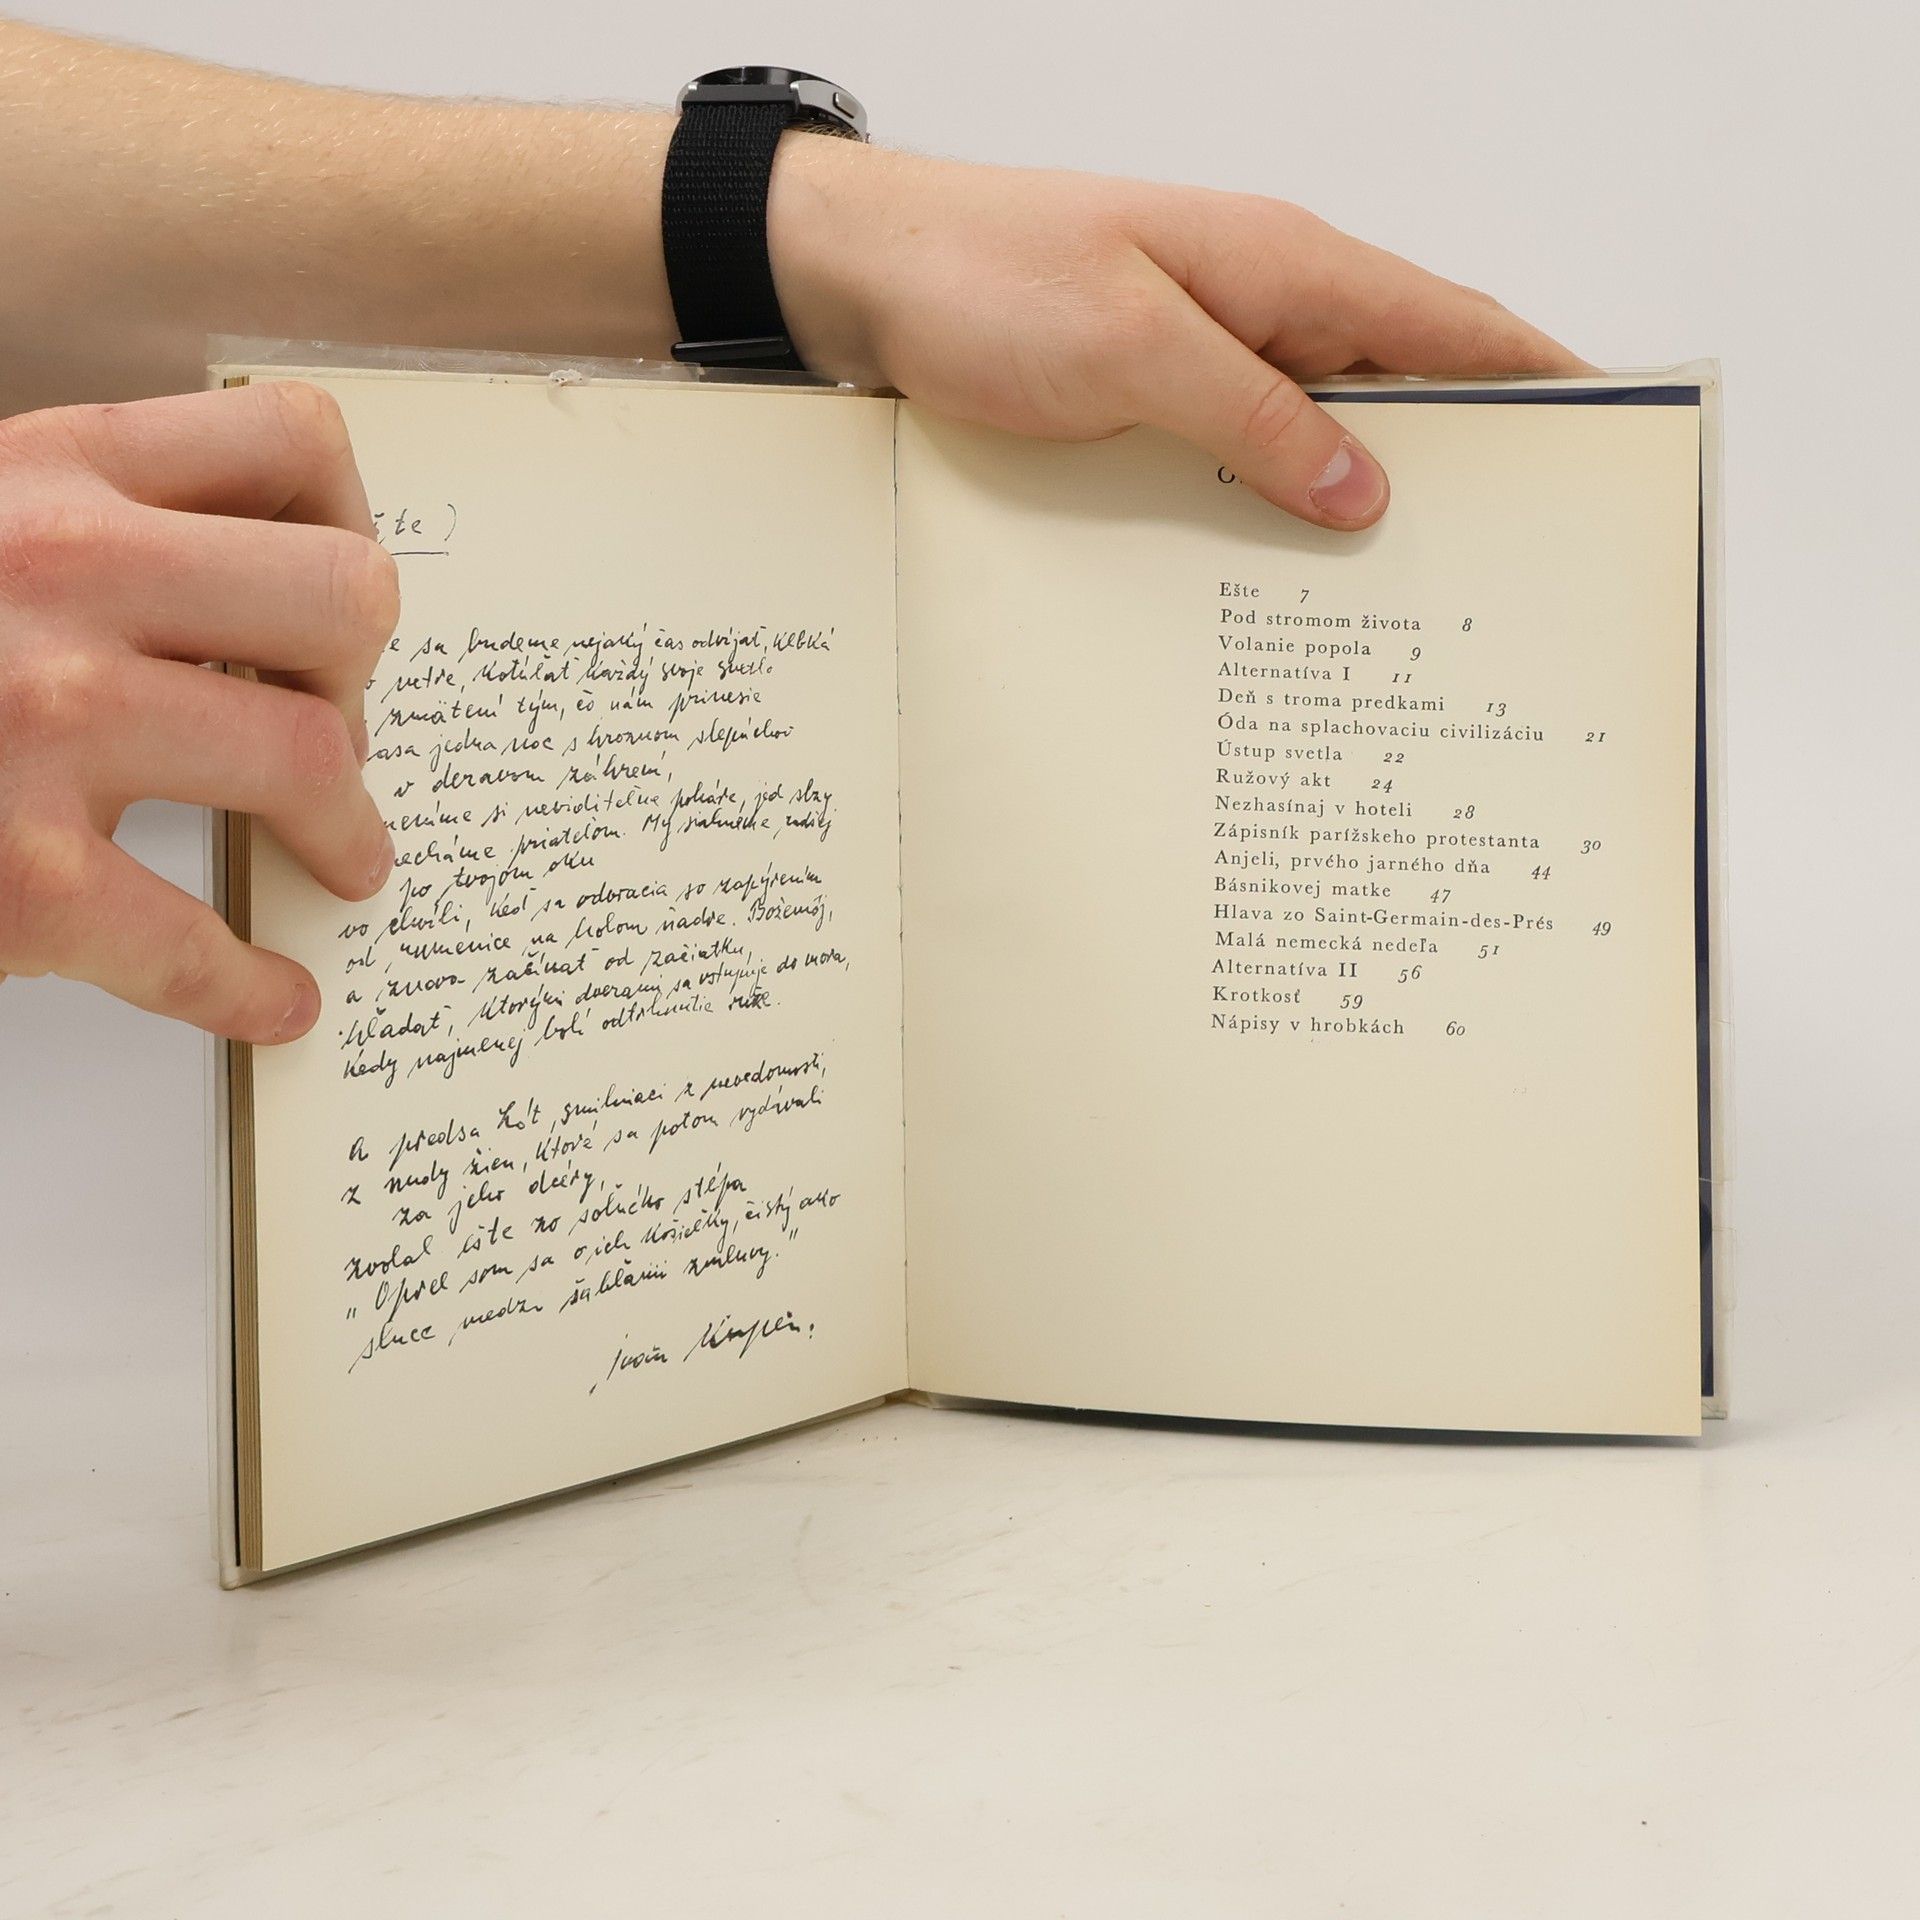 šte )
sa budeme nejaký čas odvíjať, klbká
vo vetre, kotúľať každý svoje svetlo
zmätení tým, čo nám prinesie
jedna noc s hroznom slepúchov
v deravom záhrení,
si neviditeľné poháre, jed slzy
necháme priateľom. My siahneme radšej
po tvojom oku
vo chvíli, keď sa odvracia so zapýrením
od rumenice na holom ňadre. Božemôj,
a znova začínať od začiatku,
hľadať, ktorými dverami sa vstupuje do mora,
kedy najmenej bolí odtrhnutie ruže.
A predsa Lót, smilniaci z nevedomosti,
z nudy žien, ktoré sa potom vydávali
za jeho dcéry,
zvolal ešte zo soľného stĺpa
„Oprel som sa o ich košieľky, čistý ako
slnce medzi šabľami zmluvy."
Ešte 7
Pod stromom života 8
Volanie popola 9
Alternatíva I 11
Deň s troma predkami 13
Óda na splachovaciu civilizáciu 21
Ústup svetla 22
Ružový akt 24
Nezhasínaj v hoteli 28
Zápisník parížskeho protestanta 30
Anjeli, prvého jarného dňa 44
Básnikovej matke 47
Hlava zo Saint-Germain-des-Prés 49
Malá nemecká nedeľa 51
Alternatíva II 56
Krotkosť 59
Nápisy v hrobkách 60